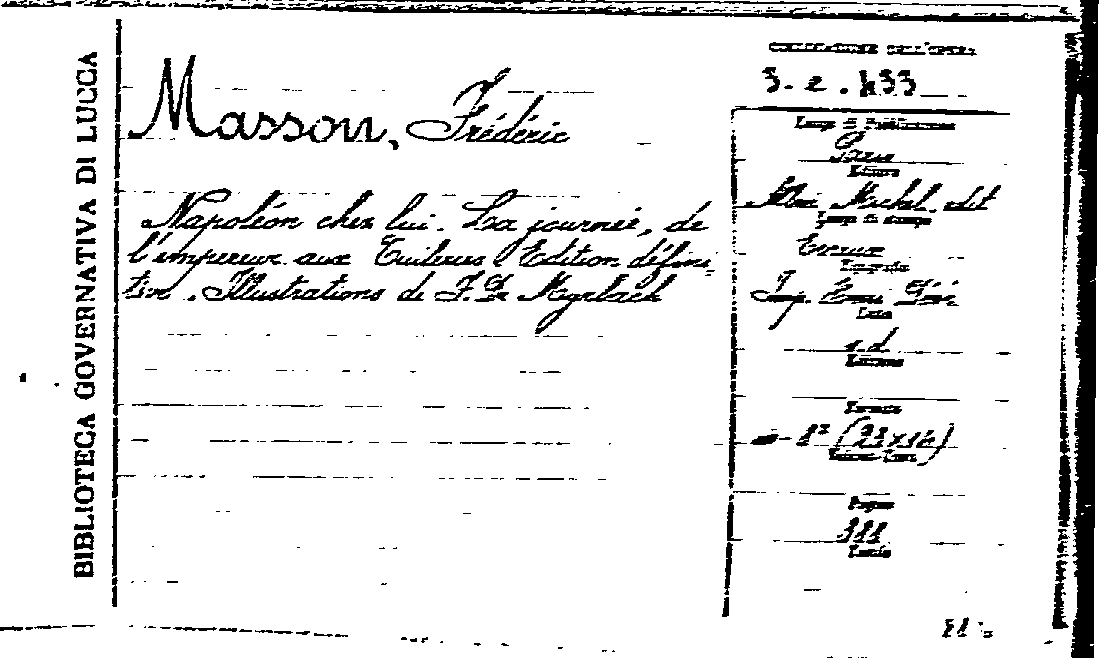 BIBLIOTECA GOVERNATIVA DI LUCCA
Masson, Frédéric
Napoléon chez lui. La journée, de
l'empereur aux Tuileries Edition défini-
tive. Illustrations de F. De Myrbach
COLLOCAZIONE DELL'OPERA
3. 2. 433
Luogo di Pubblicazione
Paris
Editore
Michel edit
Luogo di stampa
Evreux
Imp.
Data
s. d.
Edizione
Formato
8° (23x16)
Pagine
Tavole